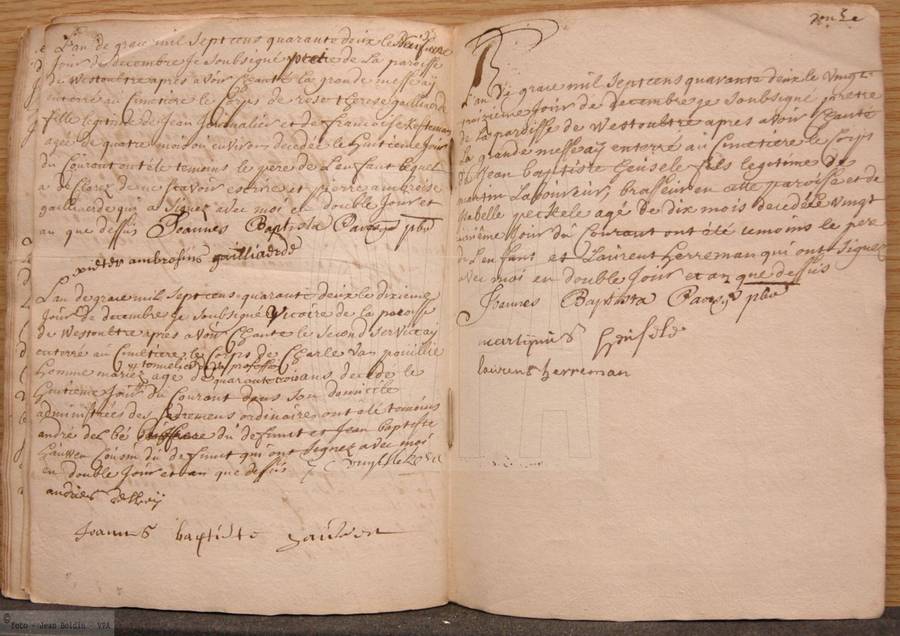 L'an de grace mil sept cens quarante deux le
Jour de decembre Je soubsigné prete de la paroisse
de Westoultre apres avoir chanté la grande messe ay
enterré au Cimetiere le Corps de rose therese gailliaerde
fille legitime de Jean Journalier et de francoise
agée de quatre mois ou environs decedée le Huitieme Jour
du Courant ont été temoins le pere de L'enfant lequel
a declaré de ne scavoir escrire et pierre ambroise
gailliaerde qui a signez avec moi en double Jour et
an que dessus Joannes Baptista pbr
pieter ambrosius gailliaerde
L'an de grace mil Sept cens quarante deux le dixieme
Jour de decembre Je Soubsigné Vicaire de la paroisse
de Westoultre apres avoir Chanté le Second Service ay
enterré au Cimetiere le Corps de Charle Van pouillie
et tonnelier de sa profession
Homme mariez agé de quarante trois ans decedé le
Huitieme Jour du Courant dans son domicile
administrées des Sacremens ordinaire ont été temoins
andré delbé du defunct et Jean baptiste
Cousin du defunct qui ont signez avec moi
en double Jour et an que dessus
andries
Joannes baptiste
L'an de grace mil Sept cens quarante deux le vingt
troizieme Jour de decembre Je Soubsigné pretre
de La paroisse de Westoultre apres avoir Chanté
La grande messe ay enterré au Cimetiere le Corps
de Jean baptiste Geinsele fils legitime de
martin Laboureur, brasseur en cette paroisse et de
Isabelle peckele agé de dix mois decedé le vingt
unième Jour du Courant ont été temoins le pere
de L'enfant et Laurent Herreman qui ont signez
avec moi en double Jour et an que dessus
Joannes Baptista pbr
martinus Geinsele
laurens herreman
© foto - Jean Boidin - VPA